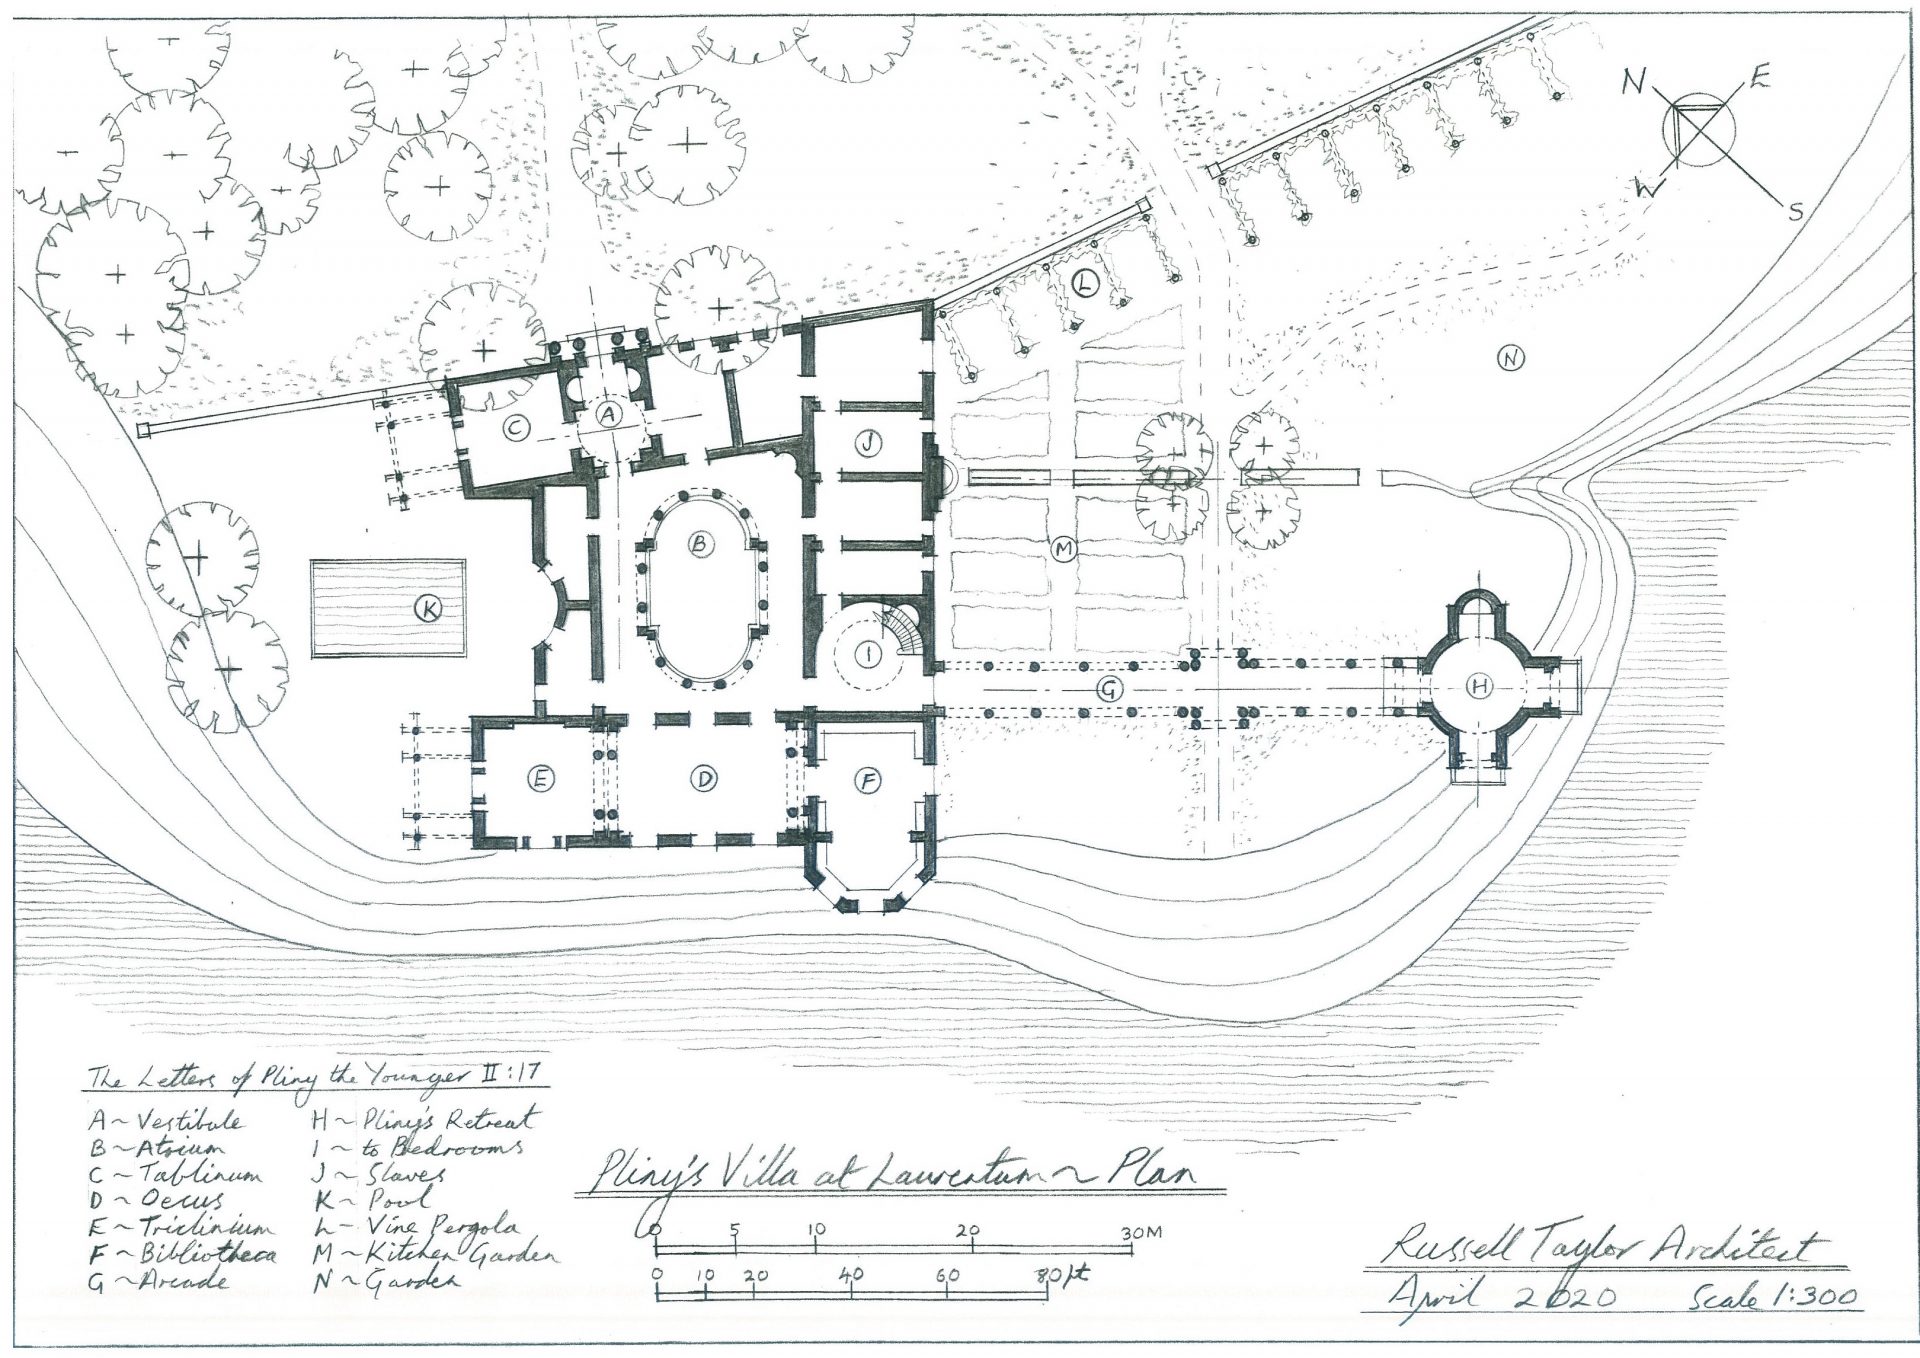 N E
W S
L
N
A
C
J
B
M
K
I
H
G
E
D
F
The Letters of Pliny the Younger II:17
A ~ Vestibule
B ~ Atrium
C ~ Tablinum
D ~ Oecus
E ~ Triclinium
F ~ Bibliotheca
G ~ Arcade
H ~ Pliny's Retreat
I ~ to Bedrooms
J ~ Slaves
K ~ Pool
L ~ Vine Pergola
M ~ Kitchen Garden
N ~ Garden
Pliny's Villa at Laurentum ~ Plan
0 5 10 20 30M
0 10 20 40 60 80ft
Russell Taylor Architect
April 2020 Scale 1:300